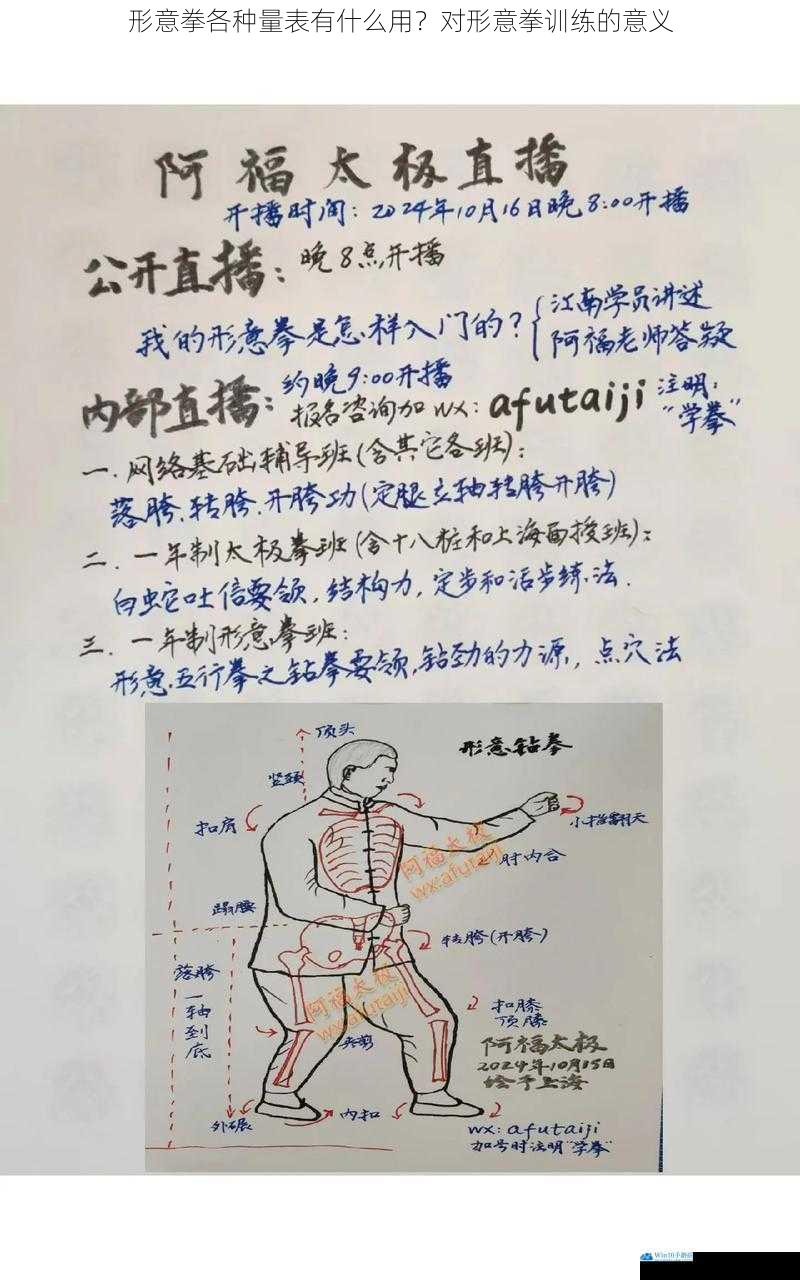 形意拳各种量表有什么用？对形意拳训练的意义
阿福太极直播
开播时间：2024年10月16日晚8:00开播
公开直播：晚8点开播
我的形意拳是怎样入门的？{江南学员讲述
阿福老师答疑
内部直播：约晚9:00开播
报名咨询加wx：afutaiji 注明：
“学拳”
一.网络基础辅导班(含其它各班)：
落胯、转胯、开胯功(定腿立轴转胯开胯)
二.一年制太极拳班(含十八桩和上海面授班)：
白蛇吐信要领，结构力，定步和活步练法.
三.一年制形意拳班：
形意五行拳之钻拳要领，钻劲的力源，点穴法
顶头
形意钻拳
竖颈
扣肩
小指翻天
肘内合
阿福太极
wx:afutaiji
塌腰
转胯(开胯)
落胯
一轴到底
阿福太极
wx:afutaiji
扣膝
顶膝
夹剪
阿福太极
2024年10月15日
绘于上海
外碾
内扣
wx: afutaiji
加号时注明“学拳”